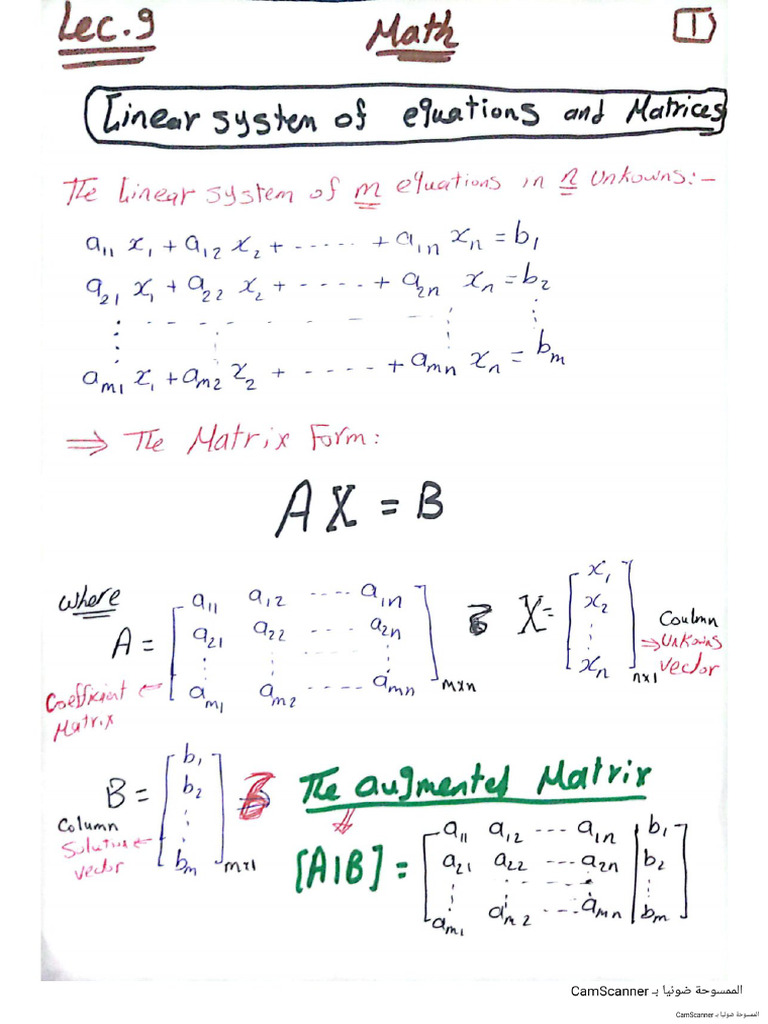 Lec.9 Math 1
Linear system of equations and Matrices
The Linear system of m equations in n unkowns:-
a11 x1 + a12 x2 + ----- + a1n xn = b1
a21 x1 + a22 x2 + ----- + a2n xn = b2
am1 x1 + am2 x2 + ----- + amn xn = bm
⇒ The Matrix Form:
AX = B
where A = [a11 a12 ---- a1n
a21 a22 ---- a2n
am1 am2 ----- amn] mxn
Coefficient Matrix
& X = [x1
x2
xn] nx1
Coulmn
⇒ unkowns
vector
B = [b1
b2
bm] mx1
Column
vector
& The augmented Matrix
[A|B] = [a11 a12 --- a1n | b1
a21 a22 --- a2n | b2
am1 am2 --- amn | bm]
الممسوحة ضوئيا بـ CamScanner
الممسوحة ضوئيا بـ CamScanner